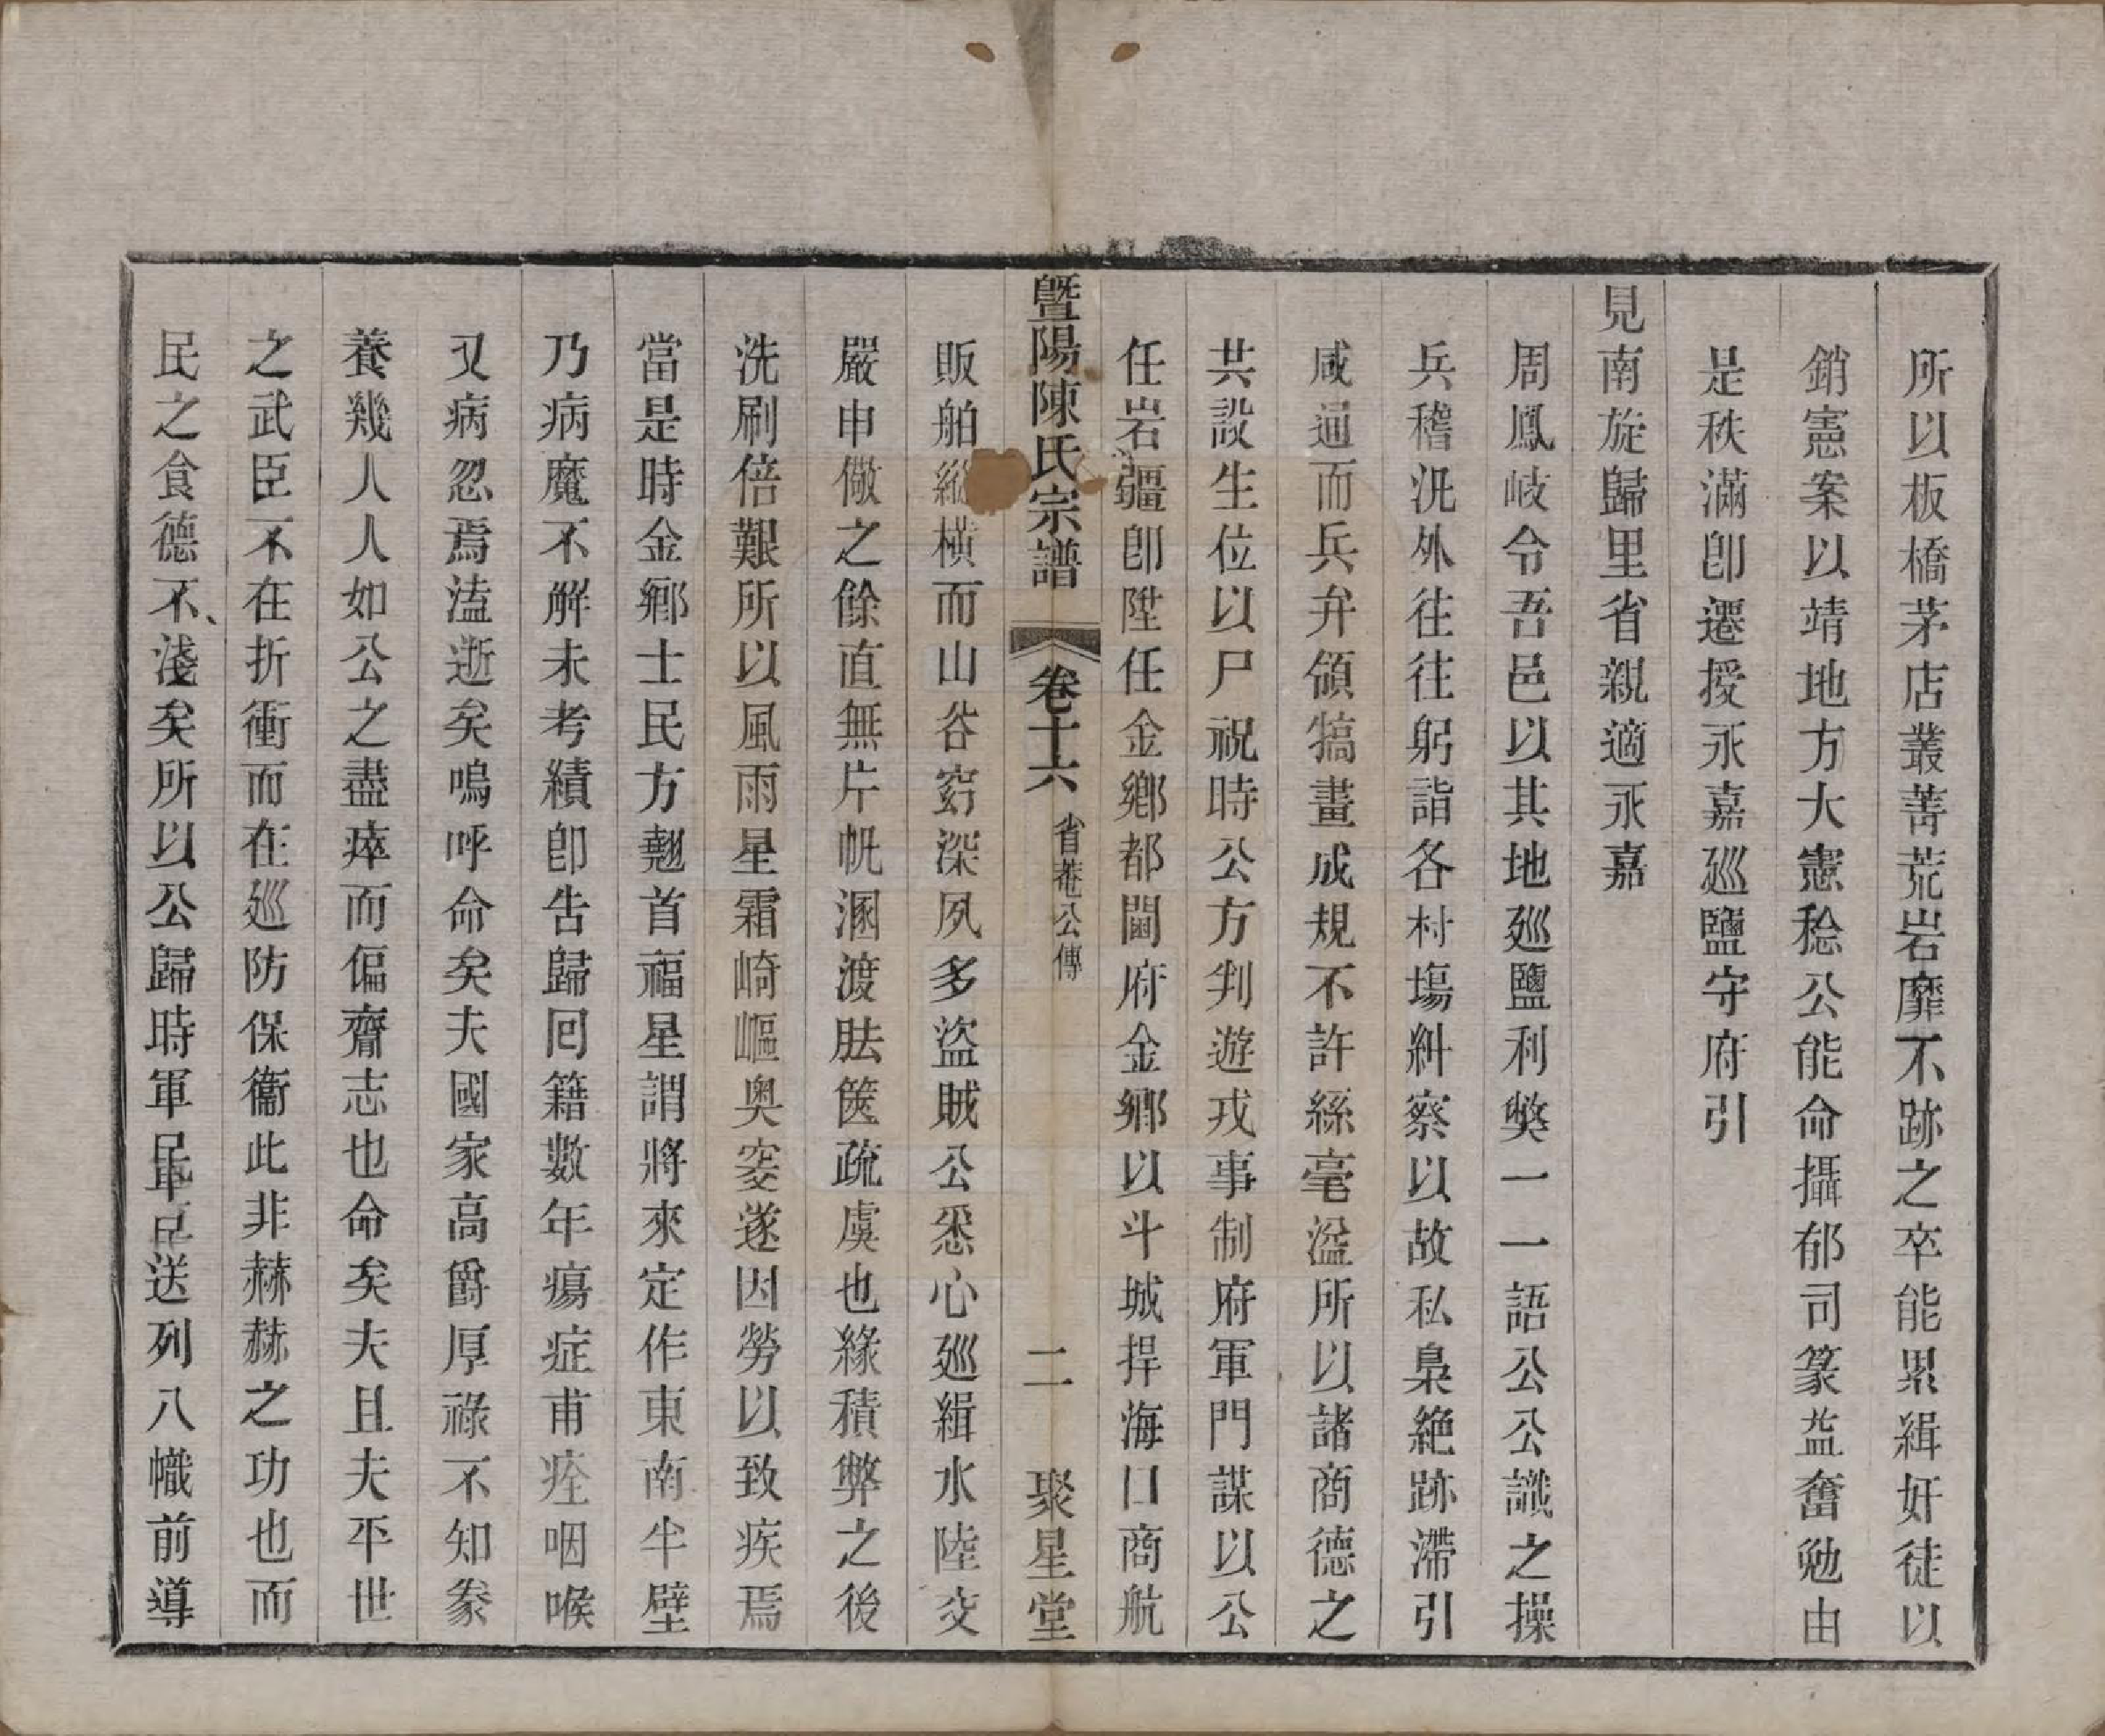 所以板橋茅店叢菁荒岩靡不跡之卒能累緝奸徒以
銷憲案以靖地方大憲稔公能命攝郁司篆益奮勉由
是秩滿卽遷授永嘉巡鹽守府引
見南旋歸里省親適永嘉
周鳳岐令吾邑以其地巡鹽利獘一一語公公識之操
兵稽汛外往往躬詣各村塲糾察以故私梟絶跡滯引
咸通而兵弁領犒畫成規不許絲毫溢所以諸商德之
共設生位以尸祝時公方判遊戎事制府軍門謀以公
任岩疆卽陞任金鄉都閫府金鄉以斗城捍海口商航
暨陽陳氏宗譜 卷十六 省菴公傳 二 聚星堂
販舶縱橫而山谷窮深夙多盜賊公悉心巡緝水陸交
嚴申儆之餘直無片帆溷渡胠篋疏虞也緣積弊之後
洗刷倍艱所以風雨星霜崎嶇奥窔遂因勞以致疾焉
當是時金鄉士民方翹首福星謂將來定作東南半壁
乃病魔不解未考績卽告歸囘籍數年瘍症甫痊咽喉
又病忽焉溘逝矣嗚呼命矣夫國家高爵厚祿不知豢
養幾人人如公之盡瘁而偏齎志也命矣夫且夫平世
之武臣不在折衝而在巡防保衞此非赫赫之功也而
民之食德不淺矣所以公歸時軍民軍民送列八幟前導